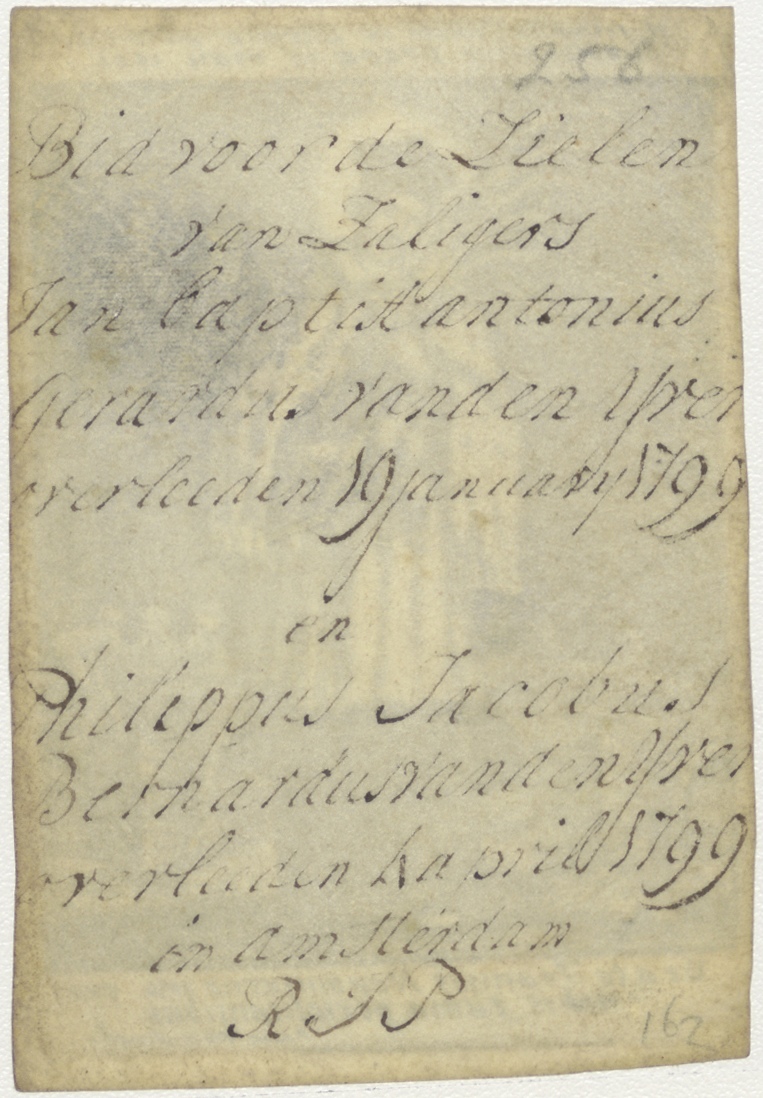 256
Bid voor de Zielen
van Zaligers
Jan baptist antonius
Gerardus vanden Yver
overleeden 19 january 1799
en
Philippus Jacobus
Bernardus vanden Yver
overleeden 4 april 1799
in amsterdam
R I P
162